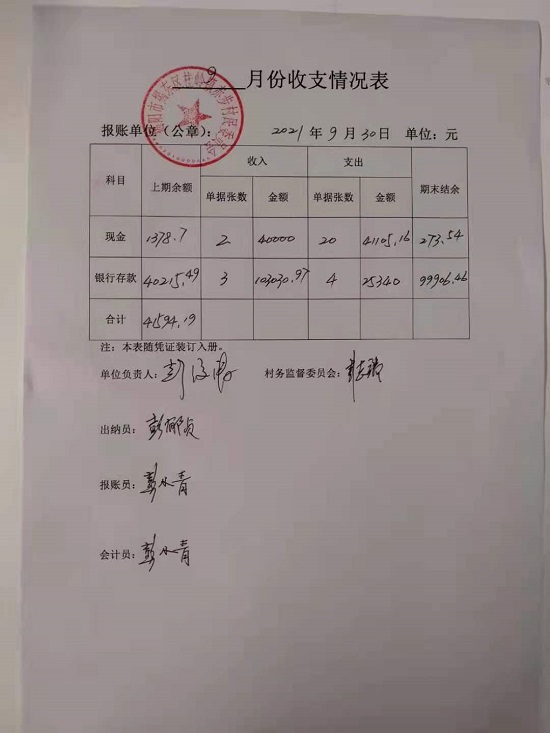 9 月份收支情况表
报账单位（公章）： 2021年9月30日 单位：元
科目 上期余额 收入 支出 期末结余
单据张数 金额 单据张数 金额
现金 1378.7 2 40000 20 41105.16 273.54
银行存款 40215.49 3 103030.97 4 25340 99906.46
合计 41594.19
注：本表随凭证装订入册。
单位负责人： 村务监督委员会：
出纳员：
报账员：彭小青
会计员：彭小青